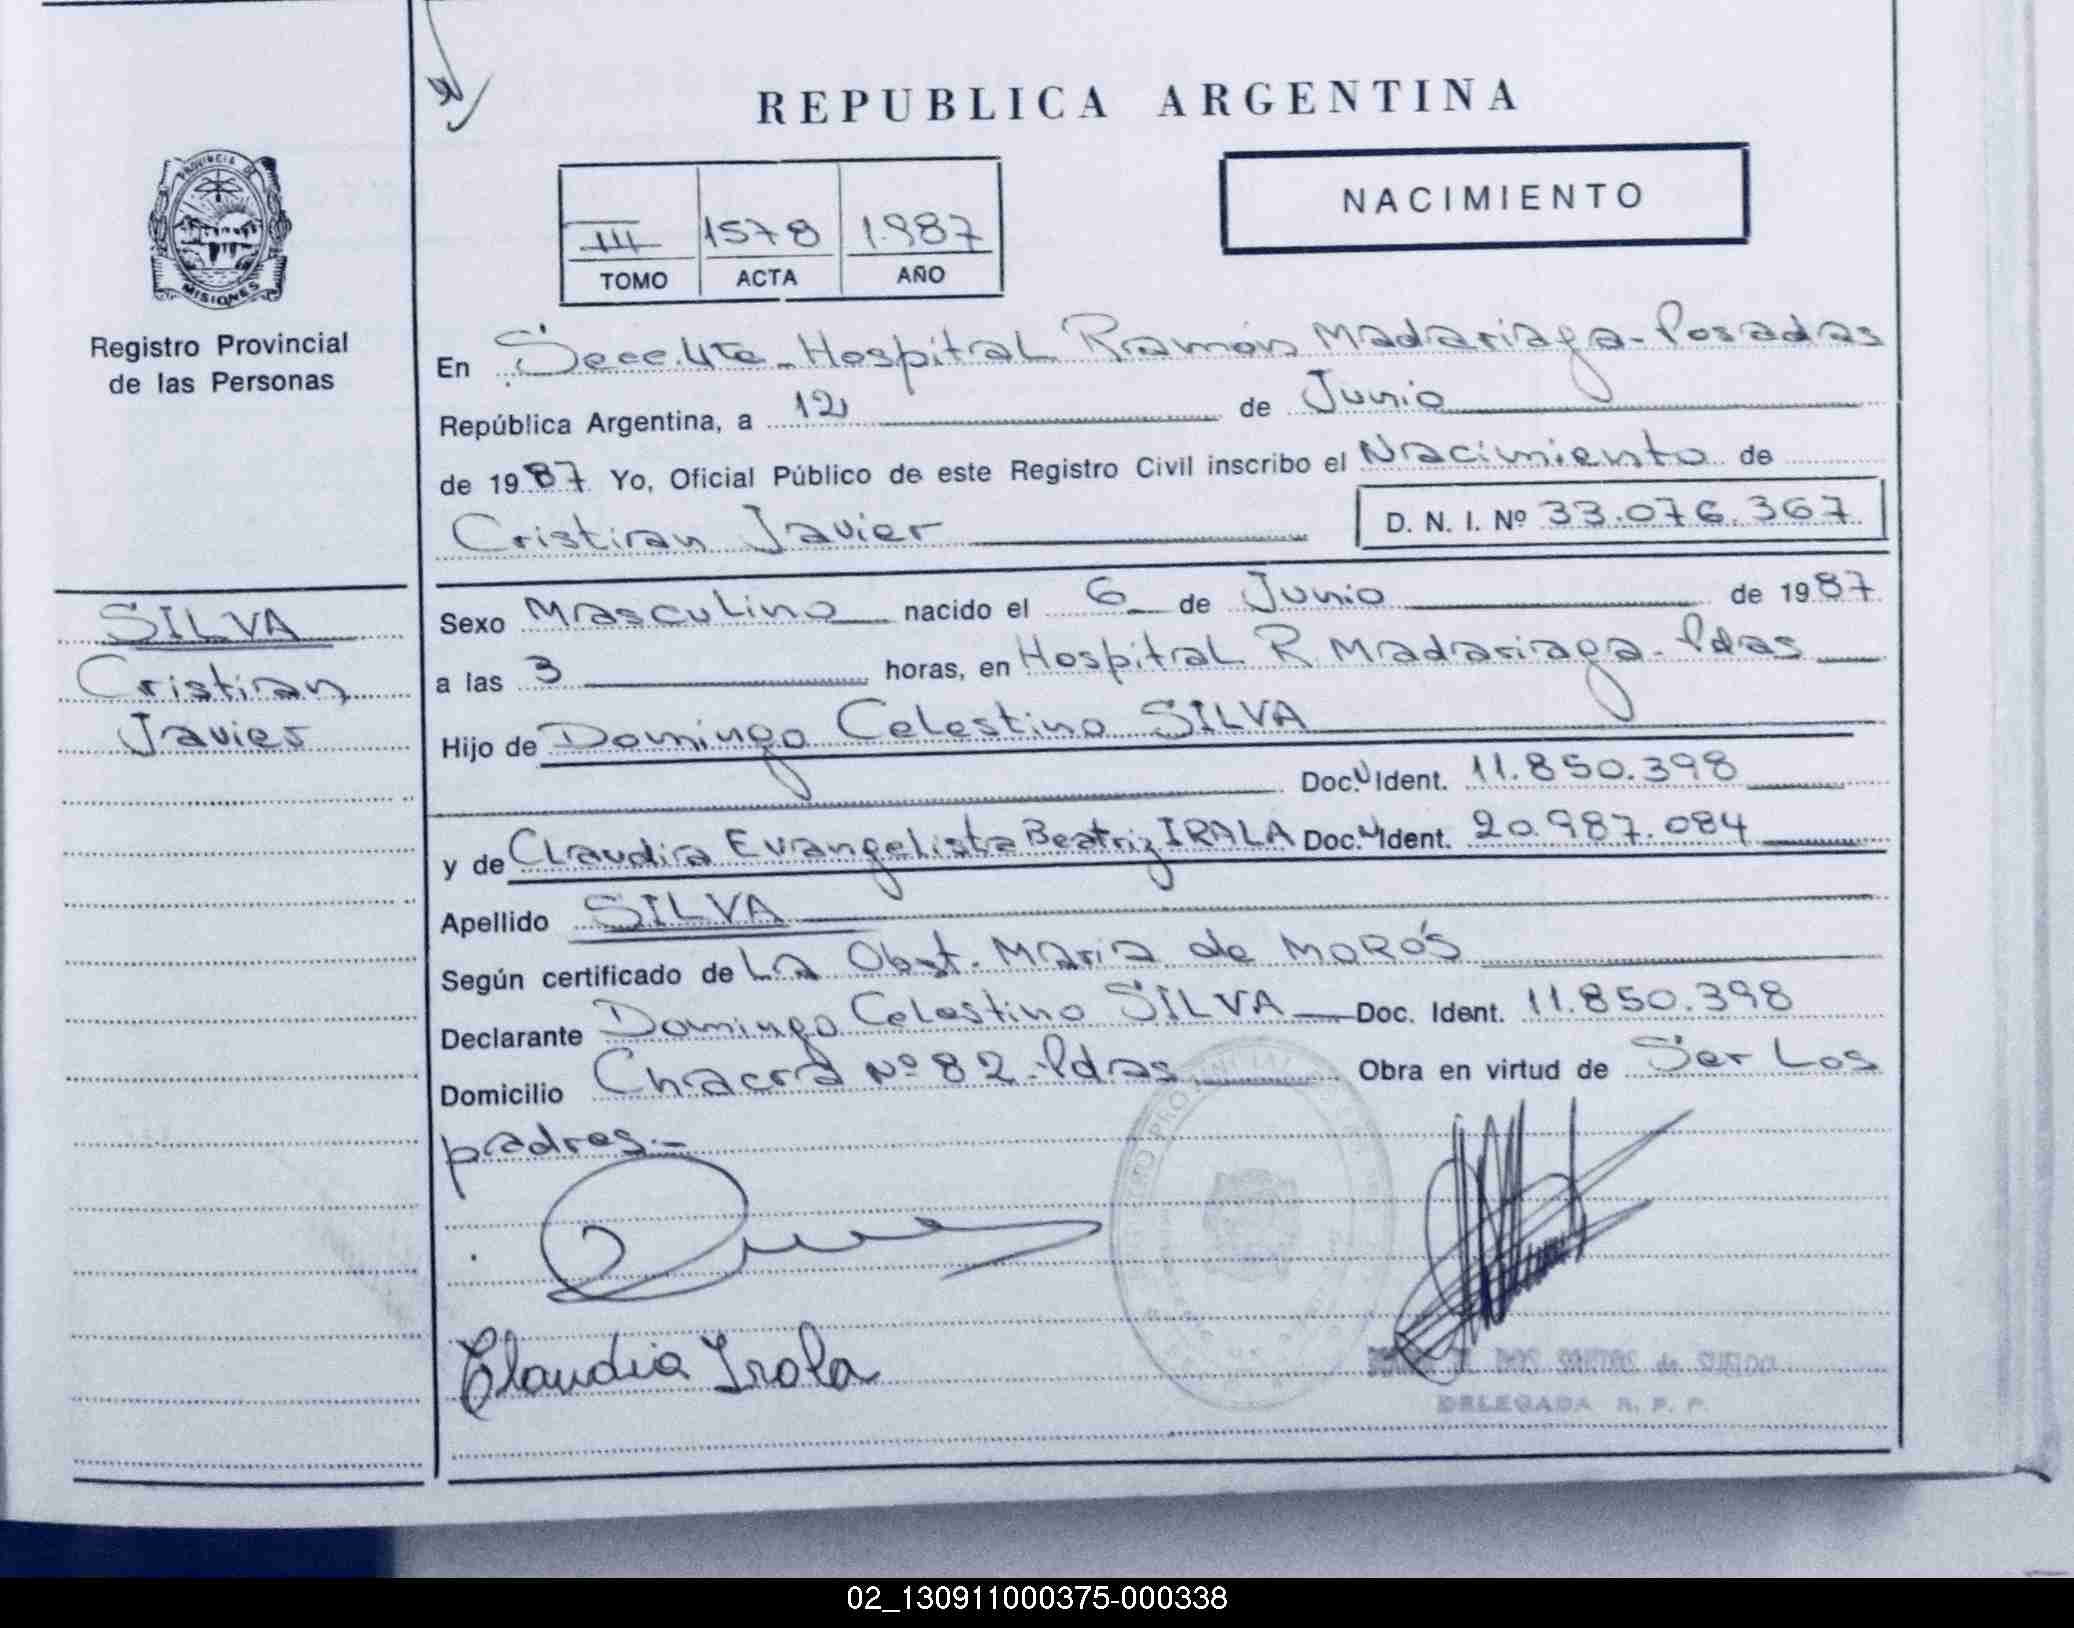 REPUBLICA ARGENTINA
NACIMIENTO
III 1578 1.987
TOMO ACTA AÑO
PROVINCIA DE
MISIONES
Registro Provincial
de las Personas
En Hospital Ramón Madariaga - Posadas
República Argentina, a 12 de Junio
de 1987 Yo, Oficial Público de este Registro Civil inscribo el Nacimiento de
Cristian Javier D. N. I. Nº 33.076.367
SILVA
Cristian
Javier
Sexo Masculino nacido el 6 de Junio de 1987
a las 3 horas, en Hospital R. Madariaga - Pdas
Hijo de Domingo Celestino SILVA
Doc. Ident. 11.850.398
y de Claudia Evangelista Beatriz IRALA Doc. Ident. 20.987.084
Apellido SILVA
Según certificado de La Obst. Maria de MOROS
Declarante Domingo Celestino SILVA Doc. Ident. 11.850.398
Domicilio Chacra Nº 82 - Pdas Obra en virtud de Ser Los
padres.-
Claudia Irala
DELEGADA R. P. P.
02_130911000375-000338